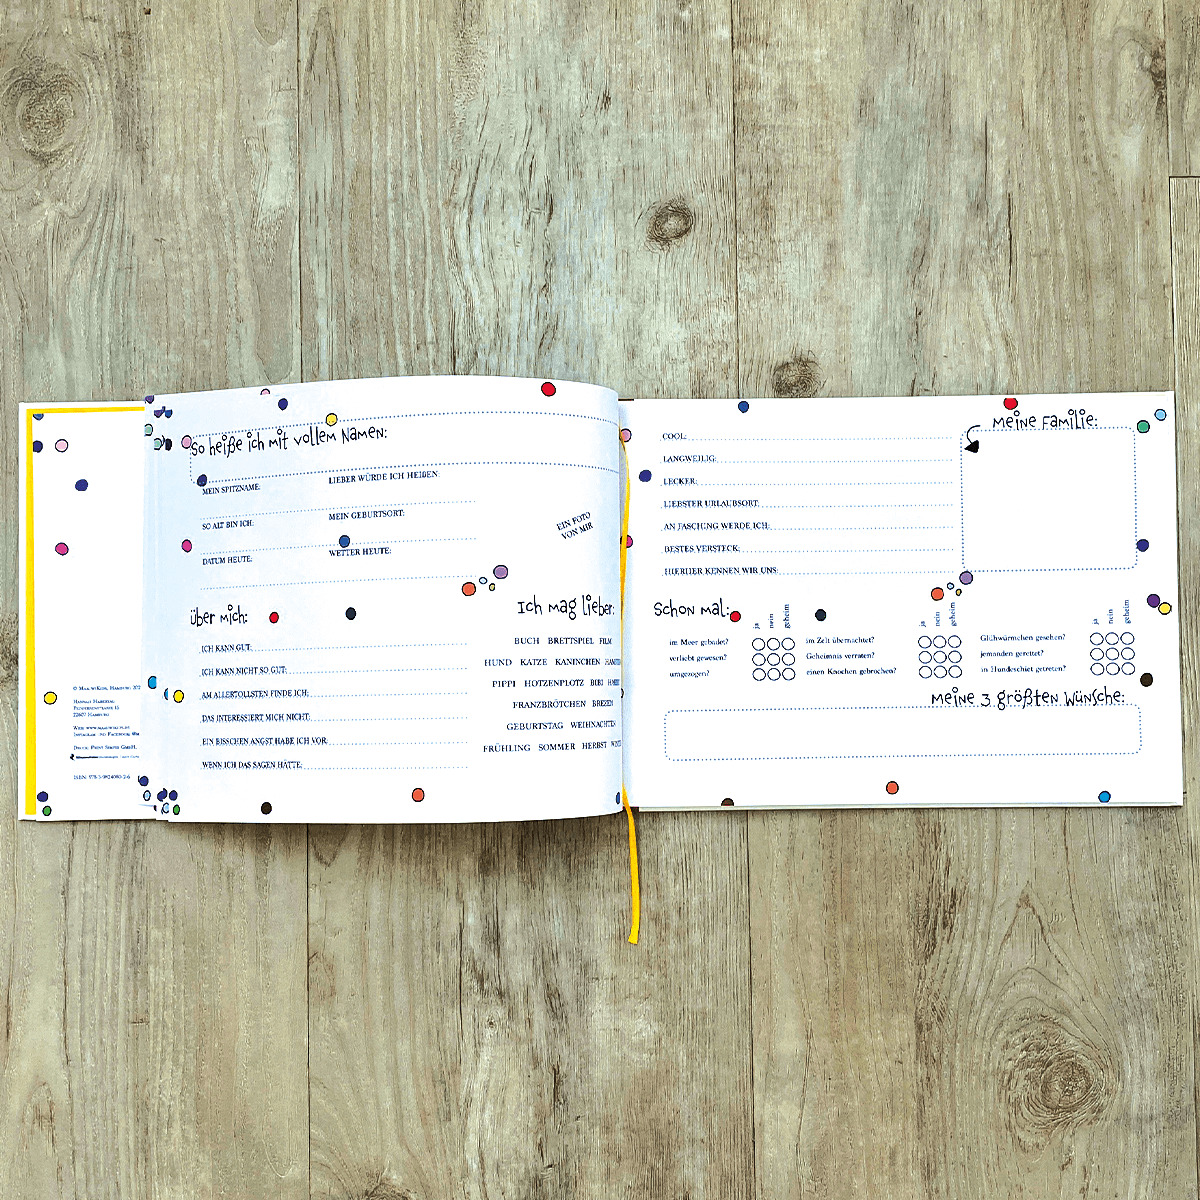 © MARMOKIDS, HAMBURG 202
HANNAH HABERZAL
22607 HAMBURG
INSTAGRAM UND FACEBOOK
ISBN: 978-3-9824080-2-6
So heiße ich mit vollem Namen:
MEIN SPITZNAME:
LIEBER WÜRDE ICH HEIßEN:
SO ALT BIN ICH:
MEIN GEBURTSORT:
DATUM HEUTE:
WETTER HEUTE:
EIN FOTO
VON MIR
über mich:
ICH KANN GUT:
ICH KANN NICHT SO GUT:
AM ALLERTOLLSTEN FINDE ICH:
DAS INTERESSIERT MICH NICHT:
EIN BISSCHEN ANGST HABE ICH VOR:
WENN ICH DAS SAGEN HÄTTE:
Ich mag lieber:
BUCH BRETTSPIEL FILM
HUND KATZE KANINCHEN
PIPPI HOTZENPLOTZ BIBI
FRANZBRÖTCHEN BREZEN
GEBURTSTAG WEIHNACHTEN
FRÜHLING SOMMER HERBST
COOL:
LANGWEILIG:
LECKER:
LIEBSTER URLAUBSORT:
AN FASCHING WERDE ICH:
BESTES VERSTECK:
HIERHER KENNEN WIR UNS:
Meine Familie:
Schon mal:
ja nein geheim
im Meer gebadet?
verliebt gewesen?
umgezogen?
ja nein geheim
im Zelt übernachtet?
Geheimnis verraten?
einen Knochen gebrochen?
ja nein geheim
Glühwürmchen gesehen?
jemanden gerettet?
in Hundeschiet getreten?
Meine 3 größten Wünsche: